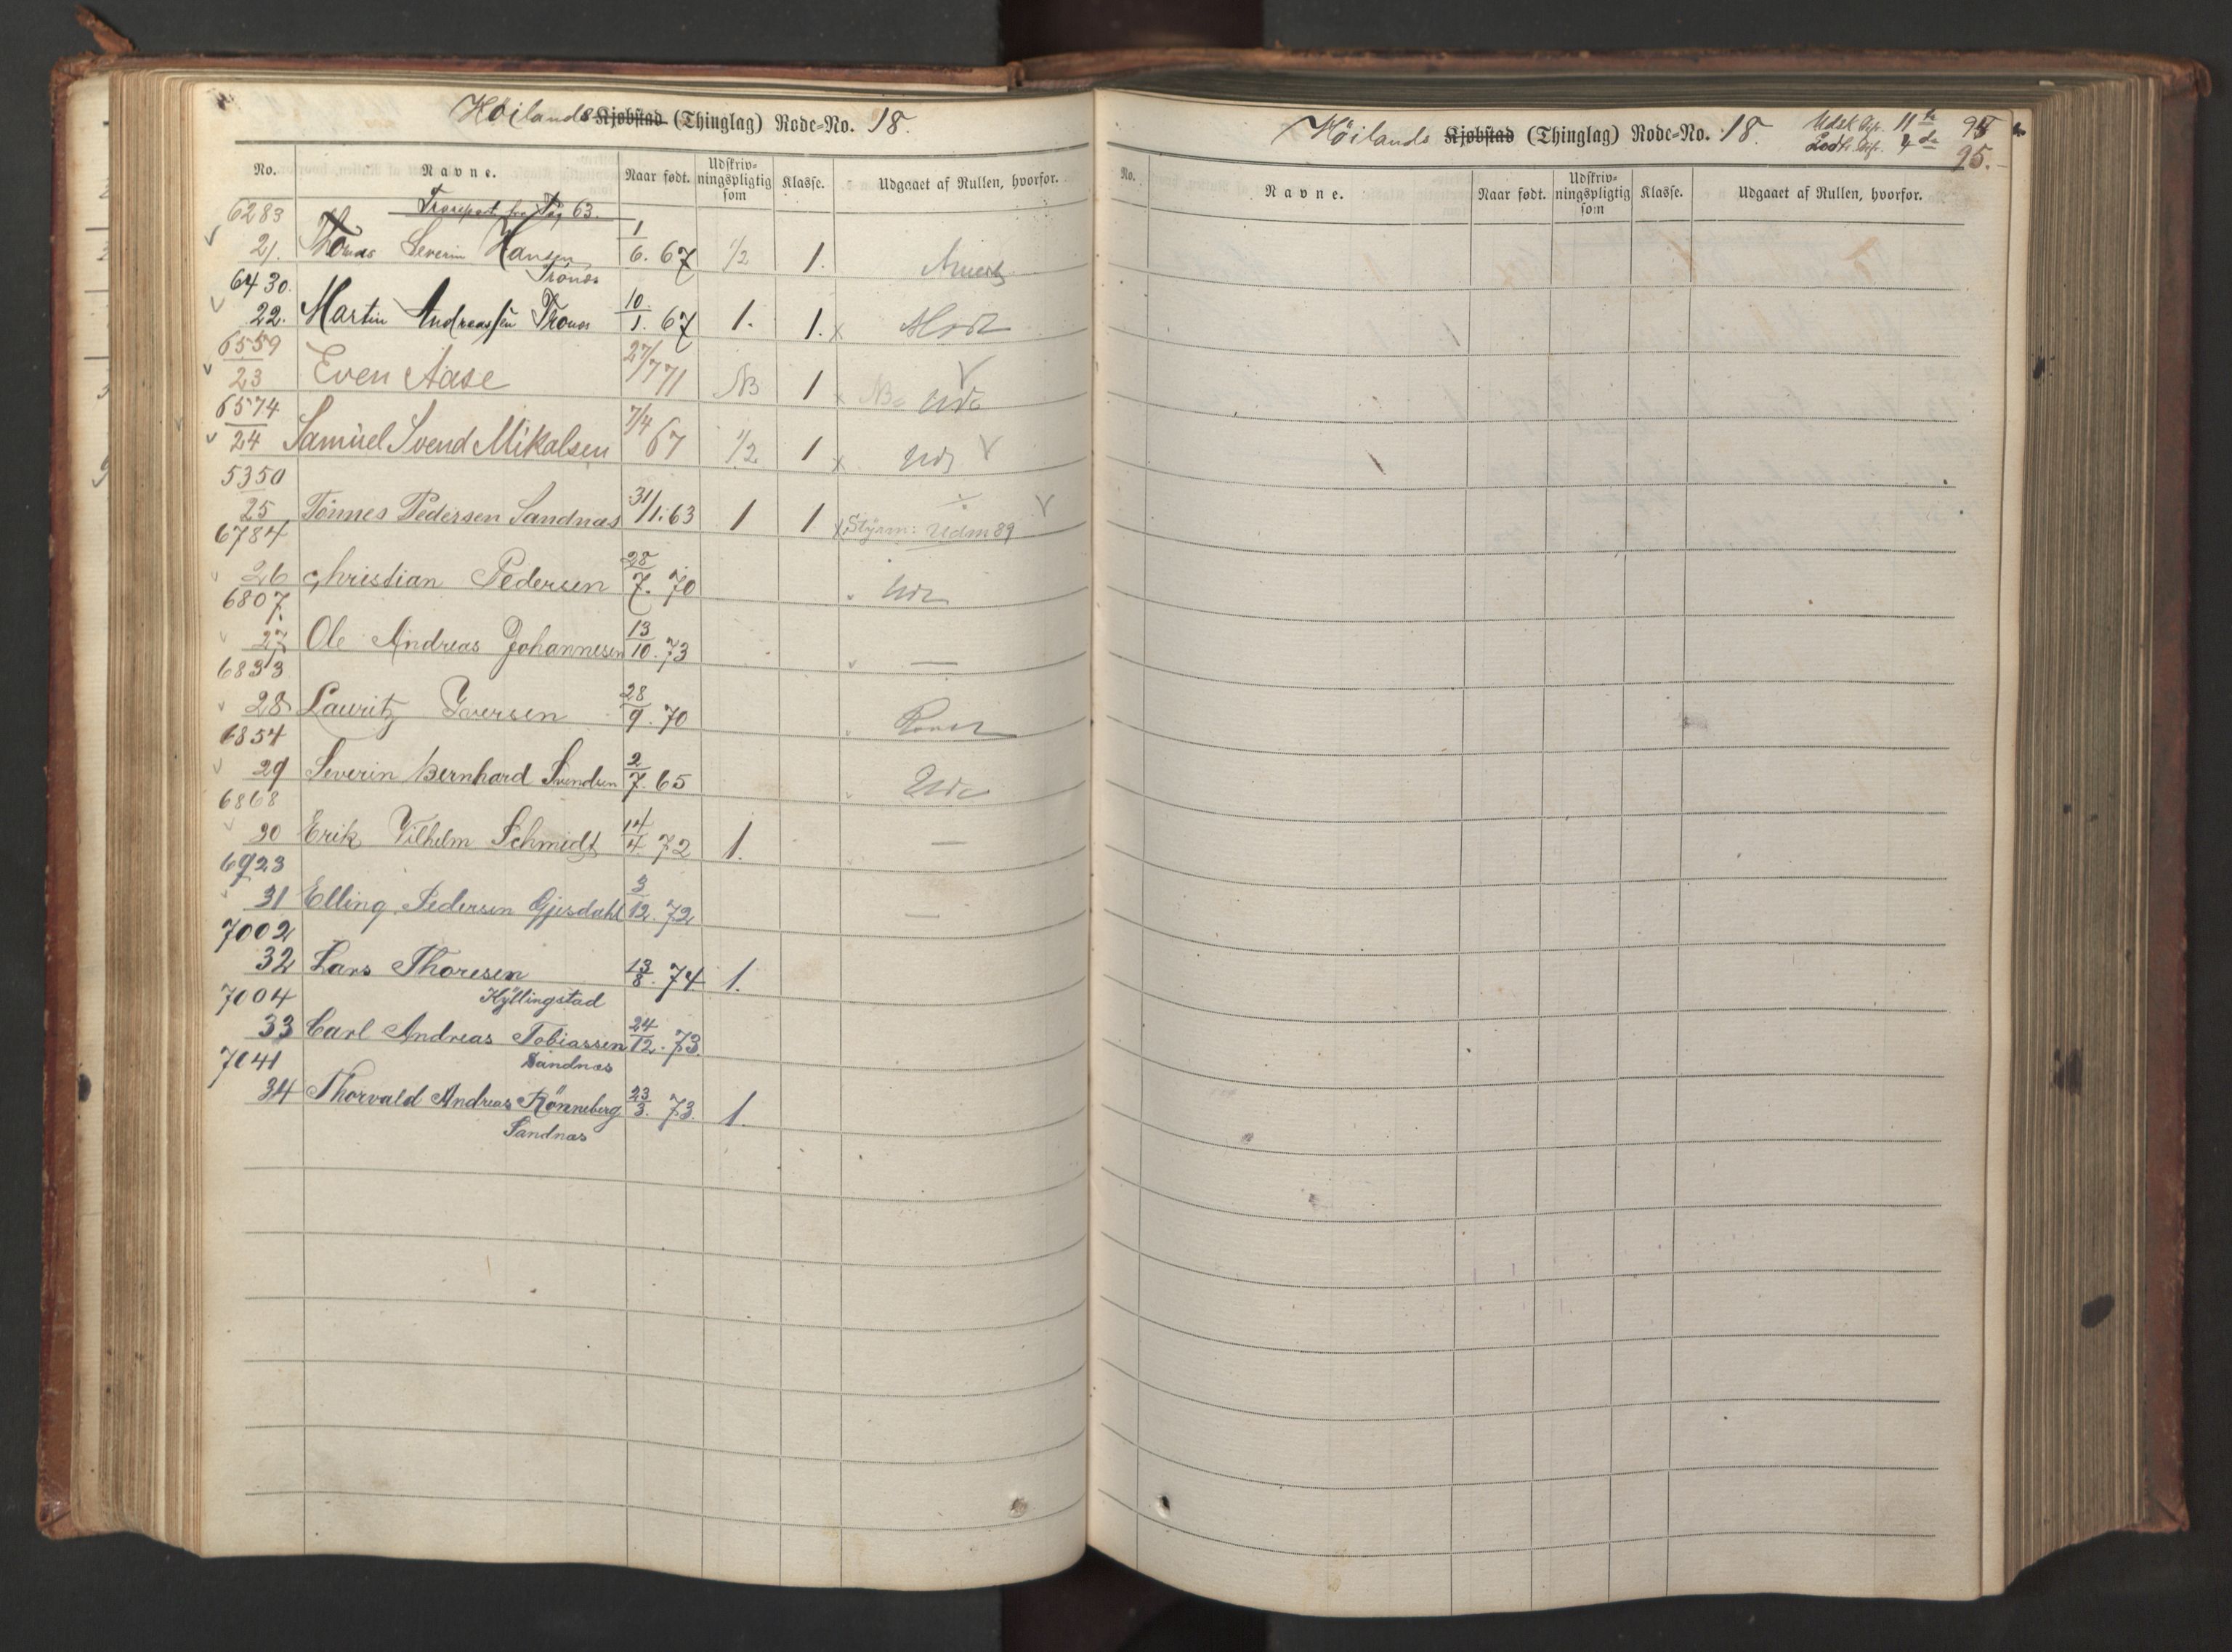 Höilands Kjøbstad (Thinglag) Rode-No. 18.
No. Navne. Naar født. Udskriv-ningspligtig som Klasse. Udgaaet af Rullen, hvorfor.
Transport fra Pag 63.
6283
21. Thomas Severin Hansen 1/6. 67 1/2 1.
Tronæs
6430.
22. Martin Andreassen Tronæs 10/1. 67 1. 1. x
6559
23 Even Aase 27/7 71 NB 1 x NB
6574
24 Samuel Svend Mikalsen 7/4 67 1/2 1 x
5350
25 Tönnes Pedersen Sandnæs 31/1. 63 1 1 x Styrm: Udm 89
6784
26 Christian Pedersen 28/7. 70
6807
27 Ole Andreas Johannesen 13/10. 73 —
6833
28 Lauritz Iversen 28/9. 70
6854
29 Severin Bernhard Svendsen 2/7. 65
6868
30 Erik Vilhelm Schmidt 14/4 72 1. —
6923
31 Elling Pedersen Gjesdahl 3/12. 72 —
7002
32 Lars Thoresen 13/8. 74 1.
Kyllingstad
7004
33 Carl Andreas Tobiassen 24/12. 73.
Sandnæs
7041
34 Thorvald Andreas Rönneberg 23/3. 73. 1.
Sandnæs
Höilands Kjøbstad (Thinglag) Rode-No. 18. Udsk. Dist. 11te
95.
No. Navne. Naar født. Udskriv-ningspligtig som Klasse. Udgaaet af Rullen, hvorfor.